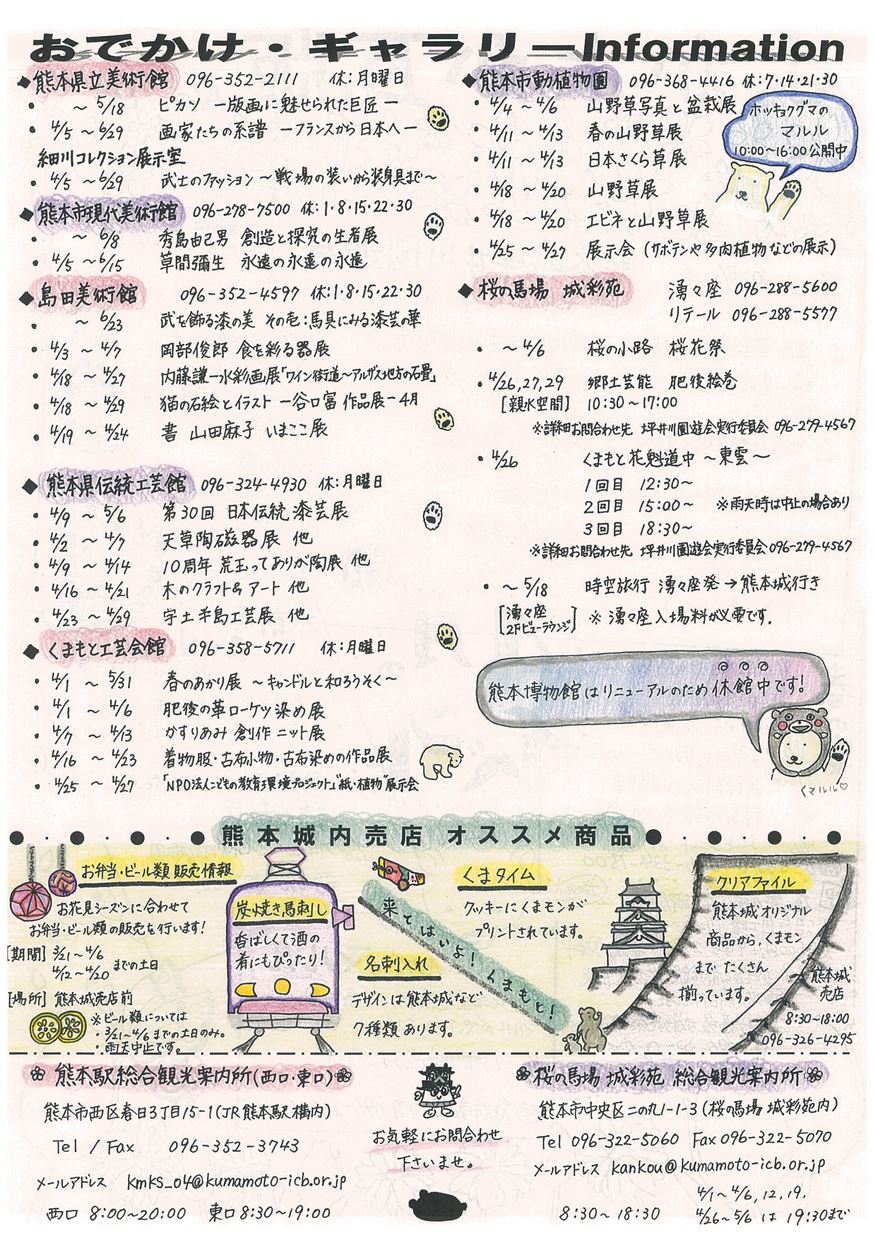 おでかけ・ギャラリーInformation
◆熊本県立美術館 096-352-2111 休:月曜日
・ ～5/18 ピカソ ー版画に魅せられた巨匠ー
・4/5 ～6/29 画家たちの系譜 ーフランスから日本へー
細川コレクション展示室
・4/5 ～6/29 武士のファッション～戦場の装いから装身具まで～
◆熊本市現代美術館 096-278-7500 休:1・8・15・22・30
・ ～6/8 秀島由己男 創造と探究の生者展
・4/5 ～6/15 草間彌生 永遠の永遠の永遠
◆島田美術館 096-352-4597 休:1・8・15・22・30
・ ～6/23 武を飾る漆の美 その壱:馬具にみる漆芸の華
・4/3 ～4/7 岡部俊郎 食を彩る器展
・4/18 ～4/27 内藤謙一水彩画展「ワイン街道～アルザス地方の石畳」
・4/18 ～4/29 猫の石絵とイラスト ー谷口富 作品展ー4月
・4/19 ～4/24 書 山田麻子 いまここ展
◆熊本県伝統工芸館 096-324-4930 休:月曜日
・4/9 ～5/6 第30回 日本伝統漆芸展
・4/2 ～4/7 天草陶磁器展 他
・4/9 ～4/14 10周年 荒玉ってありが陶展 他
・4/16 ～4/21 木のクラフト&アート 他
・4/23 ～4/29 宇土半島工芸展 他
◆くまもと工芸会館 096-358-5711 休:月曜日
・4/1 ～5/31 春のあかり展 ～キャンドルと和ろうそく～
・4/1 ～4/6 肥後の革ローケツ染め展
・4/7 ～4/13 かすりあみ 創作ニット展
・4/16 ～4/23 着物服・古布小物・古布染めの作品展
・4/25 ～4/27 「NPO法人こどもの教育環境プロジェクト」"紙・植物"展示会
◆熊本市動植物園 096-368-4416 休:7・14・21・30
・4/4 ～4/6 山野草写真と盆栽展
・4/11 ～4/13 春の山野草展
・4/11 ～4/13 日本さくら草展
・4/18 ～4/20 山野草展
・4/18 ～4/20 エビネと山野草展
・4/25 ～4/27 展示会(サボテンや多肉植物などの展示)
ホッキョクグマの
マルル
10:00～16:00公開中
◆桜の馬場 城彩苑 湧々座 096-288-5600
リテール 096-288-5577
・ ～4/6 桜の小路 桜花祭
・4/26,27,29 郷土芸能 肥後絵巻
[親水空間] 10:30～17:00
※詳細お問合わせ先 坪井川園遊会実行委員会 096-279-4567
・4/26 くまもと花魁道中 ～東雲～
1回目 12:30～
2回目 15:00～ ※雨天時は中止の場合あり
3回目 18:30～
※詳細お問合わせ先 坪井川園遊会実行委員会 096-279-4567
・～5/18 時空旅行 湧々座発→熊本城行き
[湧々座 2Fビューラウンジ] ※湧々座入場料が必要です。
熊本博物館はリニューアルのため休館中です!
くマルル♡
熊本城内売店 オススメ商品
お弁当・ビール類 販売情報
お花見シーズンに合わせて
お弁当・ビール類の販売を行います!
[期間] 3/21～4/6
4/12～4/20 までの土日
[場所] 熊本城売店前
※ビール類については
・3/21～4/6までの土日のみ。
・雨天中止です。
炭焼き馬刺し
香ばしくて酒の
肴にもぴったり!
来てはいよ!くまもと!
名刺入れ
デザインは熊本城など
7種類あります。
くまタイム
クッキーにくまモンが
プリントされています。
クリアファイル
熊本城オリジナル
商品から、くまモン
まで たくさん
揃っています。
熊本城
売店
8:30~18:00
096-326-4295
熊本駅総合観光案内所(西口・東口)
熊本市西区春日3丁目15-1(JR熊本駅構内)
Tel / Fax 096-352-3743
メールアドレス kmks_04@kumamoto-icb.or.jp
西口 8:00～20:00 東口8:30～19:00
お気軽にお問合わせ
下さいませ。
桜の馬場 城彩苑 総合観光案内所
熊本市中央区二の丸1-1-3(桜の馬場 城彩苑内)
Tel 096-322-5060 Fax 096-322-5070
メールアドレス kankou@kumamoto-icb.or.jp
8:30～18:30
4/1～4/6, 12, 19.
4/26～5/6 は 19:30まで